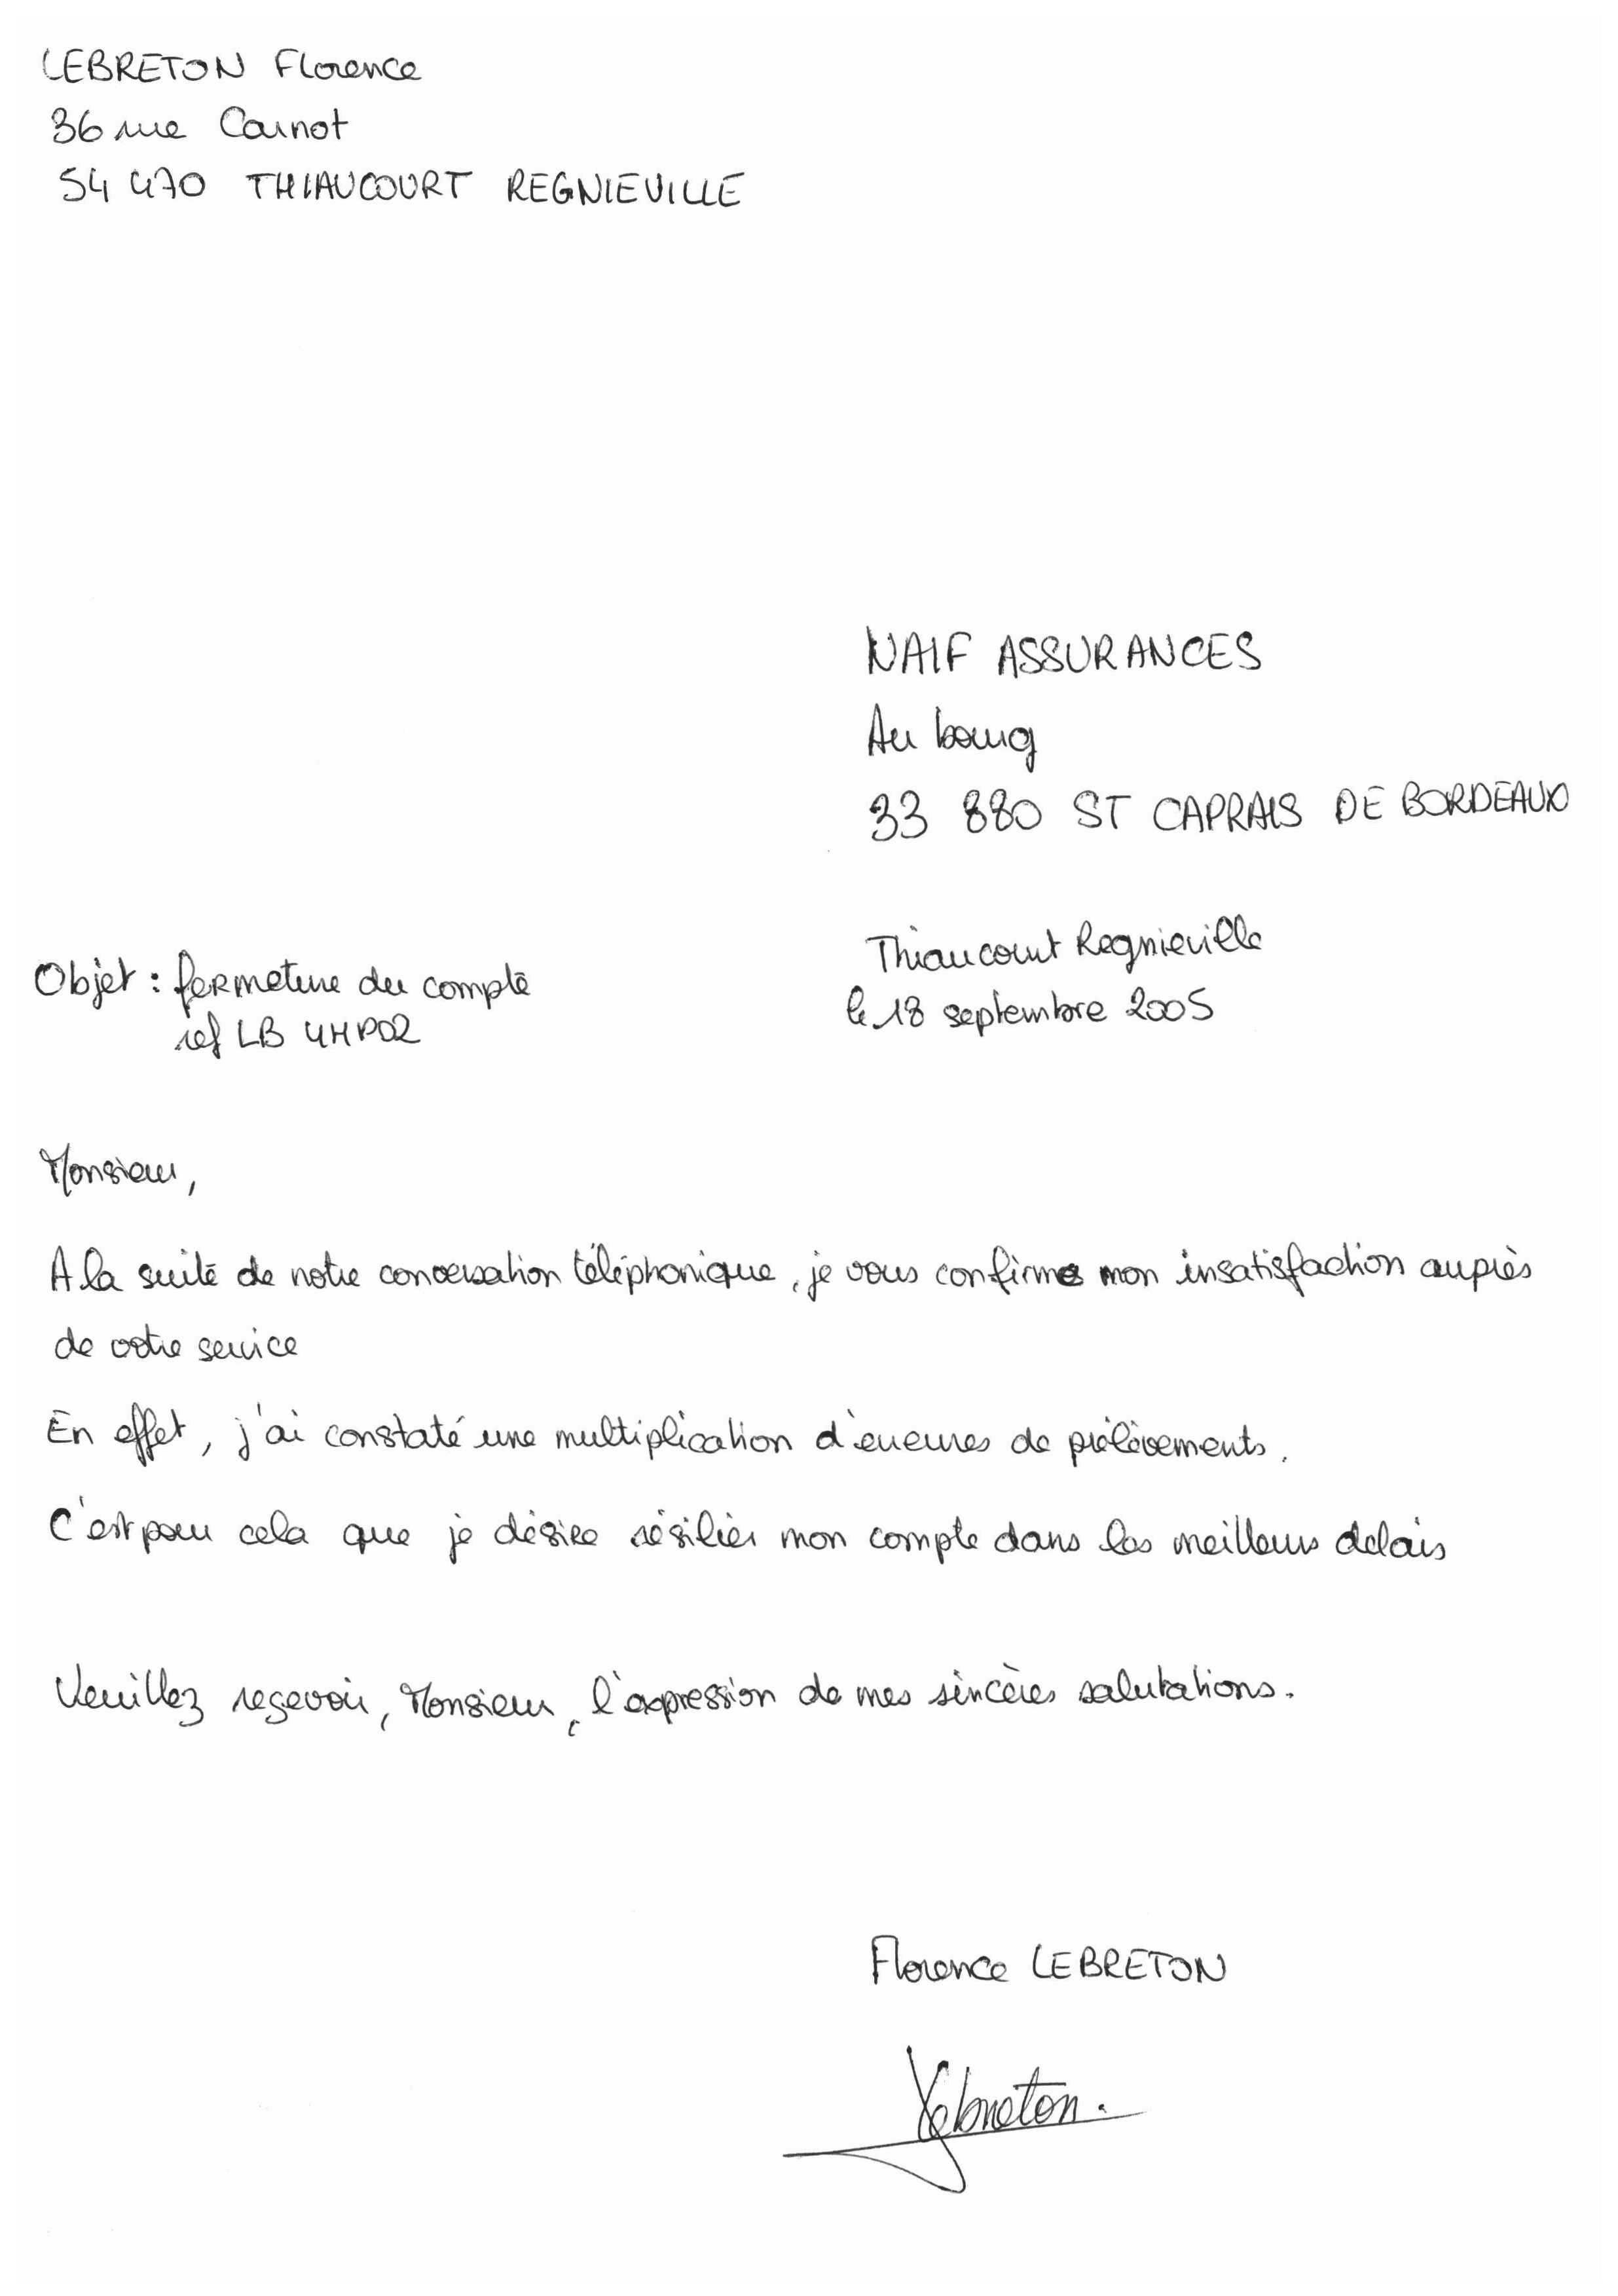 LEBRETON Florence
36 rue Carnot
54 470 THIAUCOURT REGNIEVILLE
NAIF ASSURANCES
Au bourg
33 880 ST CAPRAIS DE BORDEAUX
Thiaucourt Regnieville
le 18 septembre 2005
Objet : fermeture du compte
ref LB 4HP02
Monsieur,
A la suite de notre conversation téléphonique, je vous confirme mon insatisfaction auprès
de votre service
En effet, j'ai constaté une multiplication d'erreures de prélèvements.
C'est pour cela que je désire résilier mon compte dans les meilleurs delais
Veuillez reçevoir, Monsieur, l'expression de mes sincères salutations.
Florence LEBRETON
Lebreton.